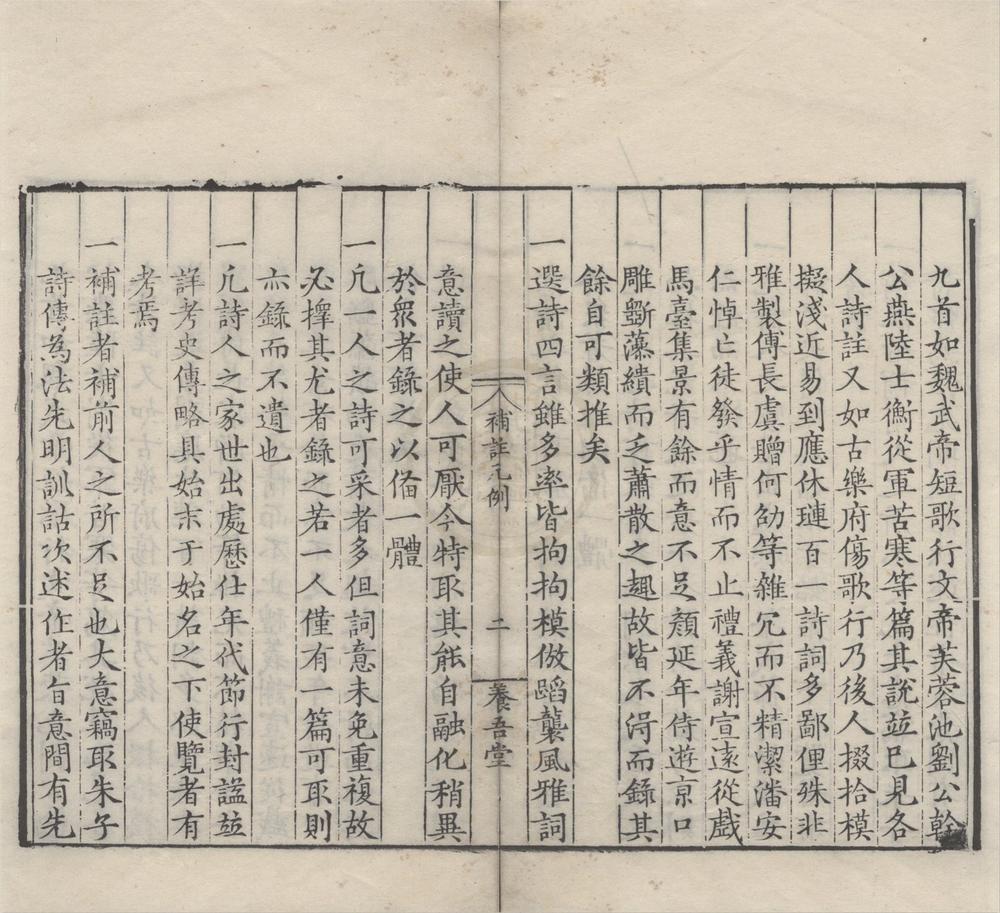 九首如魏武帝短歌行文帝芙蓉池劉公幹
公燕陸士衡從軍苦寒等篇其說並已見各
人詩註又如古樂府傷歌行乃後人掇拾模
擬淺近易到應休璉百一詩詞多鄙俚殊非
雅製傅長虞贈何劭等雜冗而不精潔潘安
仁悼亡徒發乎情而不止禮義謝宣遠從戲
馬臺集景有餘而意不足顏延年侍遊京口
雕斲藻繢而乏蕭散之趣故皆不淂而錄其
餘自可類推矣
一選詩四言雖多率皆拘拘模倣蹈襲風雅詞
補註凡例 二 養吾堂
意讀之使人可厭今特取其能自融化稍異
於衆者錄之以俻一體
一凢一人之詩可采者多但詞意未免重複故
必擇其尤者錄之若一人僅有一篇可取則
亦錄而不遺也
一凢詩人之家世出處歷仕年代節行封謚並
詳考史傳略具始末于始名之下使覽者有
考焉
一補註者補前人之所不足也大意竊取朱子
詩傳為法先明訓詁次述作者旨意間有先